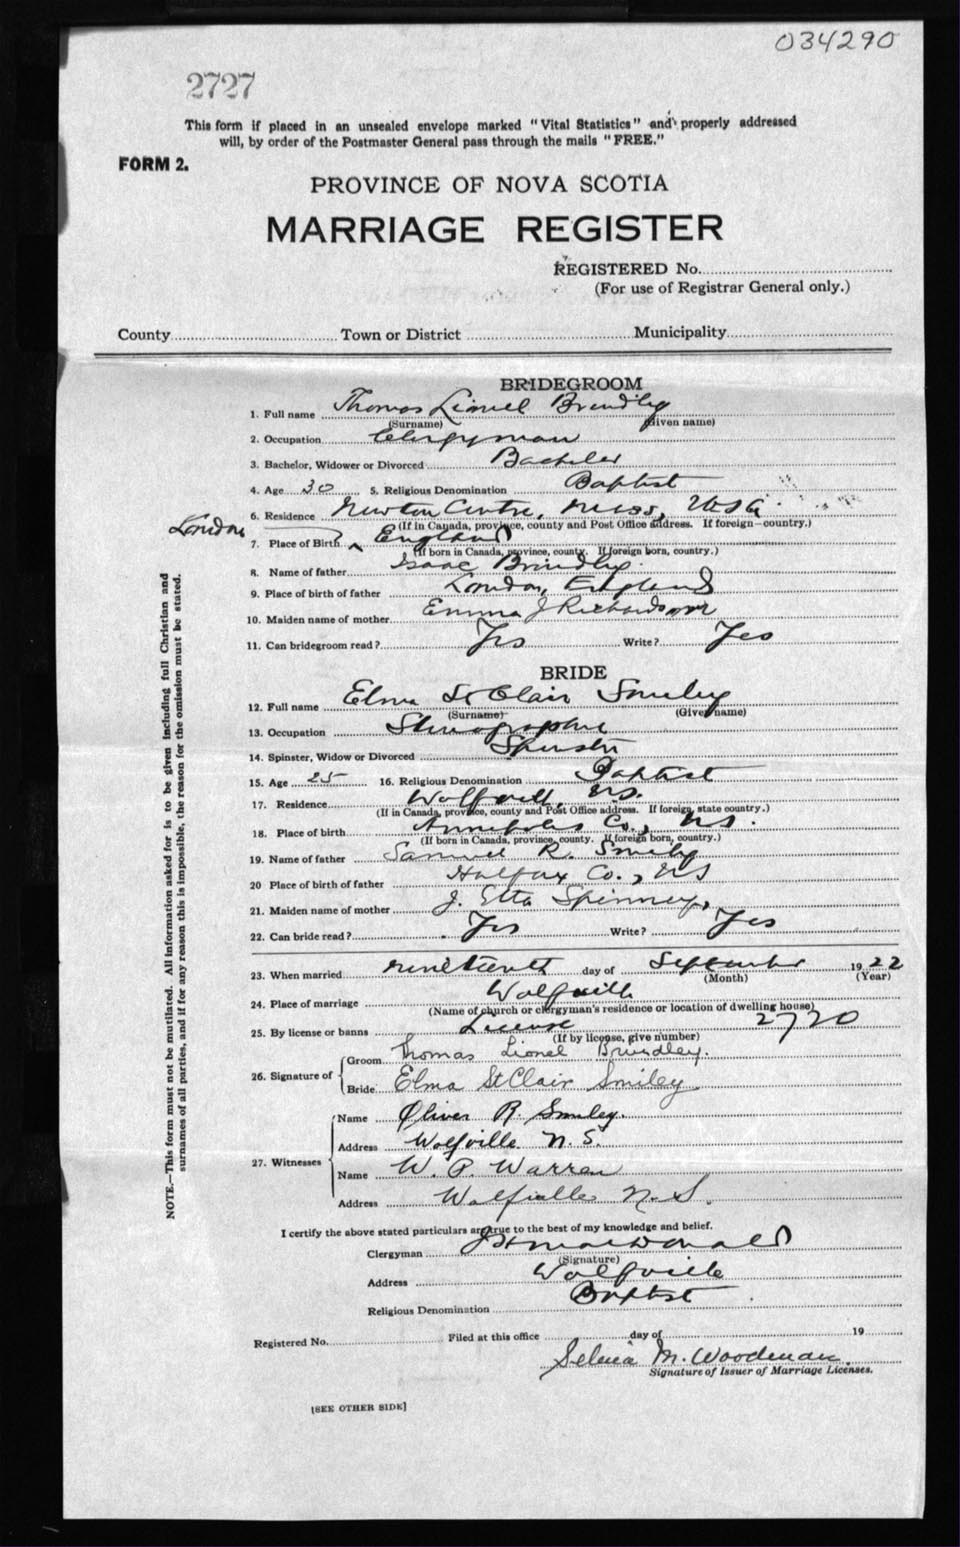 034290
2727
This form if placed in an unsealed envelope marked "Vital Statistics" and properly addressed
will, by order of the Postmaster General pass through the mails "FREE."
FORM 2.
PROVINCE OF NOVA SCOTIA
MARRIAGE REGISTER
REGISTERED No.
(For use of Registrar General only.)
County Town or District Municipality
BRIDEGROOM
1. Full name Thomas Lionel Brindley
(Surname) (Given name)
2. Occupation Clergyman
3. Bachelor, Widower or Divorced Bachelor
4. Age 30 5. Religious Denomination Baptist
6. Residence Newton Centre, Mass, USA
(If in Canada, province, county and Post Office address. If foreign—country.)
London
7. Place of Birth England
(If born in Canada, province, county. If foreign born, country.)
8. Name of father Isaac Brindley
9. Place of birth of father London, England
10. Maiden name of mother Emma J Richardson
11. Can bridegroom read? Yes Write? Yes
BRIDE
12. Full name Elma St Clair Smiley
(Surname) (Given name)
13. Occupation Stenographer
14. Spinster, Widow or Divorced Spinster
15. Age 25 16. Religious Denomination Baptist
17. Residence Wolfville, N.S.
(If in Canada, province, county and Post Office address. If foreign, state country.)
18. Place of birth Annapolis Co., N.S.
(If born in Canada, province, county. If foreign born, country.)
19. Name of father Samuel R. Smiley
20 Place of birth of father Halifax Co., NS
21. Maiden name of mother J. Etta Spinney
22. Can bride read? Yes Write? Yes
23. When married nineteenth day of September 1922
(Month) (Year)
24. Place of marriage Wolfville
(Name of church or clergyman's residence or location of dwelling house)
25. By license or banns License 2720
(If by license, give number)
26. Signature of Groom Thomas Lionel Brindley.
Bride Elma St Clair Smiley
27. Witnesses
Name Oliver R. Smiley.
Address Wolfville N.S.
Name W. P. Warren
Address Wolfville N.S.
I certify the above stated particulars are true to the best of my knowledge and belief.
Clergyman MacDonald
(Signature)
Address Wolfville
Religious Denomination Baptist
Registered No. Filed at this office day of 19
Selena M. Woodman
Signature of Issuer of Marriage Licenses.
[SEE OTHER SIDE]
NOTE.—This form must not be mutilated. All information asked for is to be given including full Christian and
surnames of all parties, and if for any reason this is impossible, the reason for the omission must be stated.